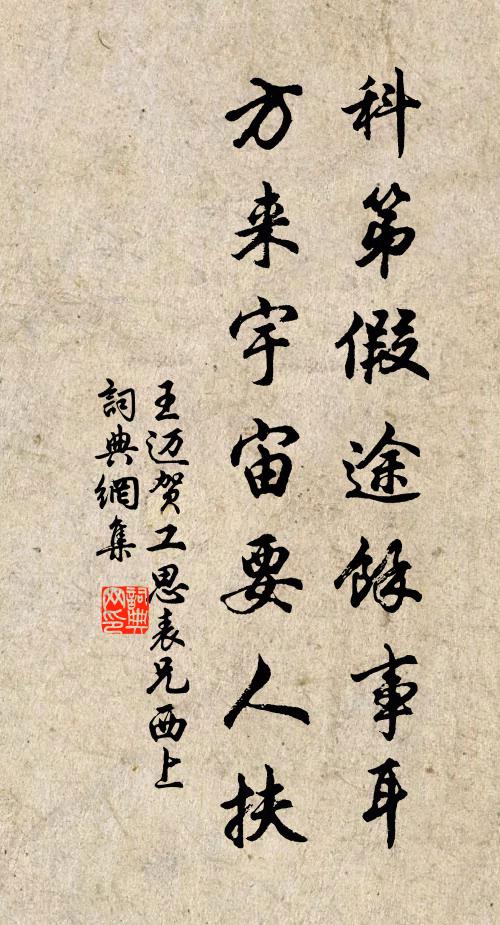 科第假途餘事耳
方来宇宙要人扶
王迈贺工思表兄西上
詞典網集
詞典网印